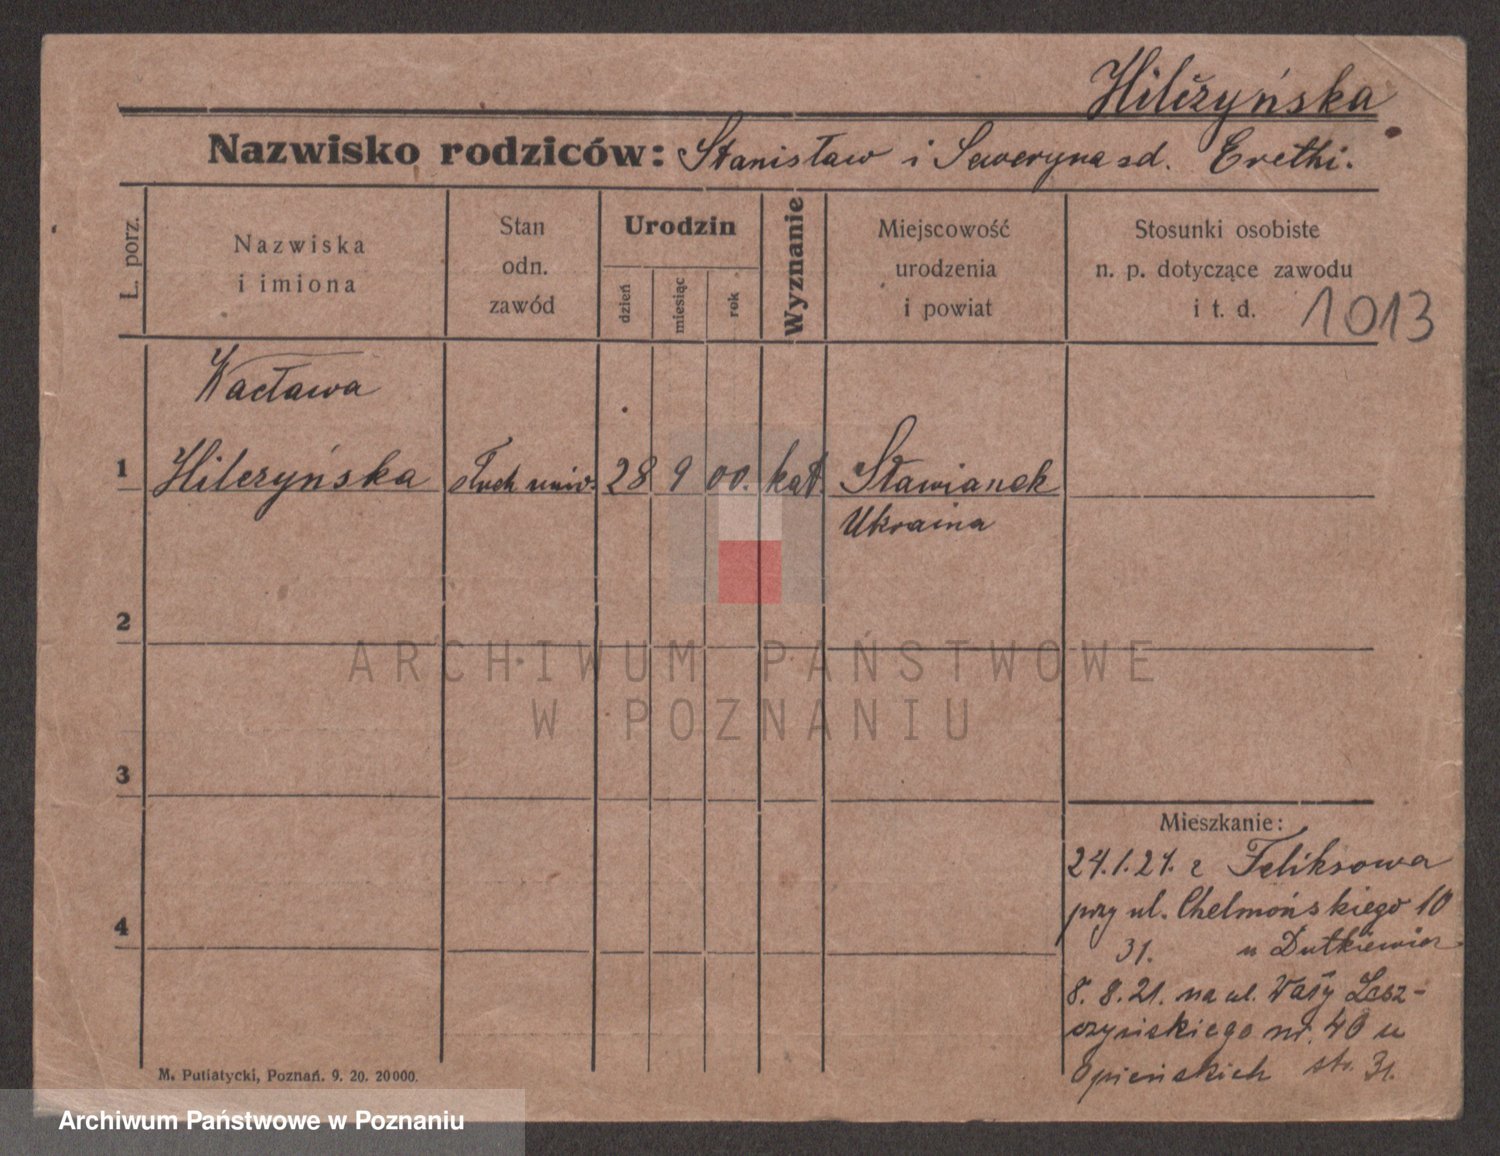 Hilczyńska
Nazwisko rodziców: Stanisław i Seweryna zd. Erethi.
L. porz.
Nazwiska
i imiona
Stan
odn.
zawód
Urodzin
dzień
miesiąc
rok
Wyznanie
Miejscowość
urodzenia
i powiat
Stosunki osobiste
n. p. dotyczące zawodu
i t. d.
1013
Wacława
1 Hilczyńska słuch. uniw. 28 9 00. kat. Sławianek
Ukraina
2
3
4
ARCHIWUM PAŃSTWOWE
W POZNANIU
Mieszkanie:
24.1.21. z Feliksowa
przy ul. Chełmońskiego 10
31. u Dutkiewicz
8. 8. 21. na ul. Wały Lesz-
czyńskiego nr. 40 u
Opieńskich str. 31.
M. Putiatycki, Poznań. 9. 20. 20000.
Archiwum Państwowe w Poznaniu